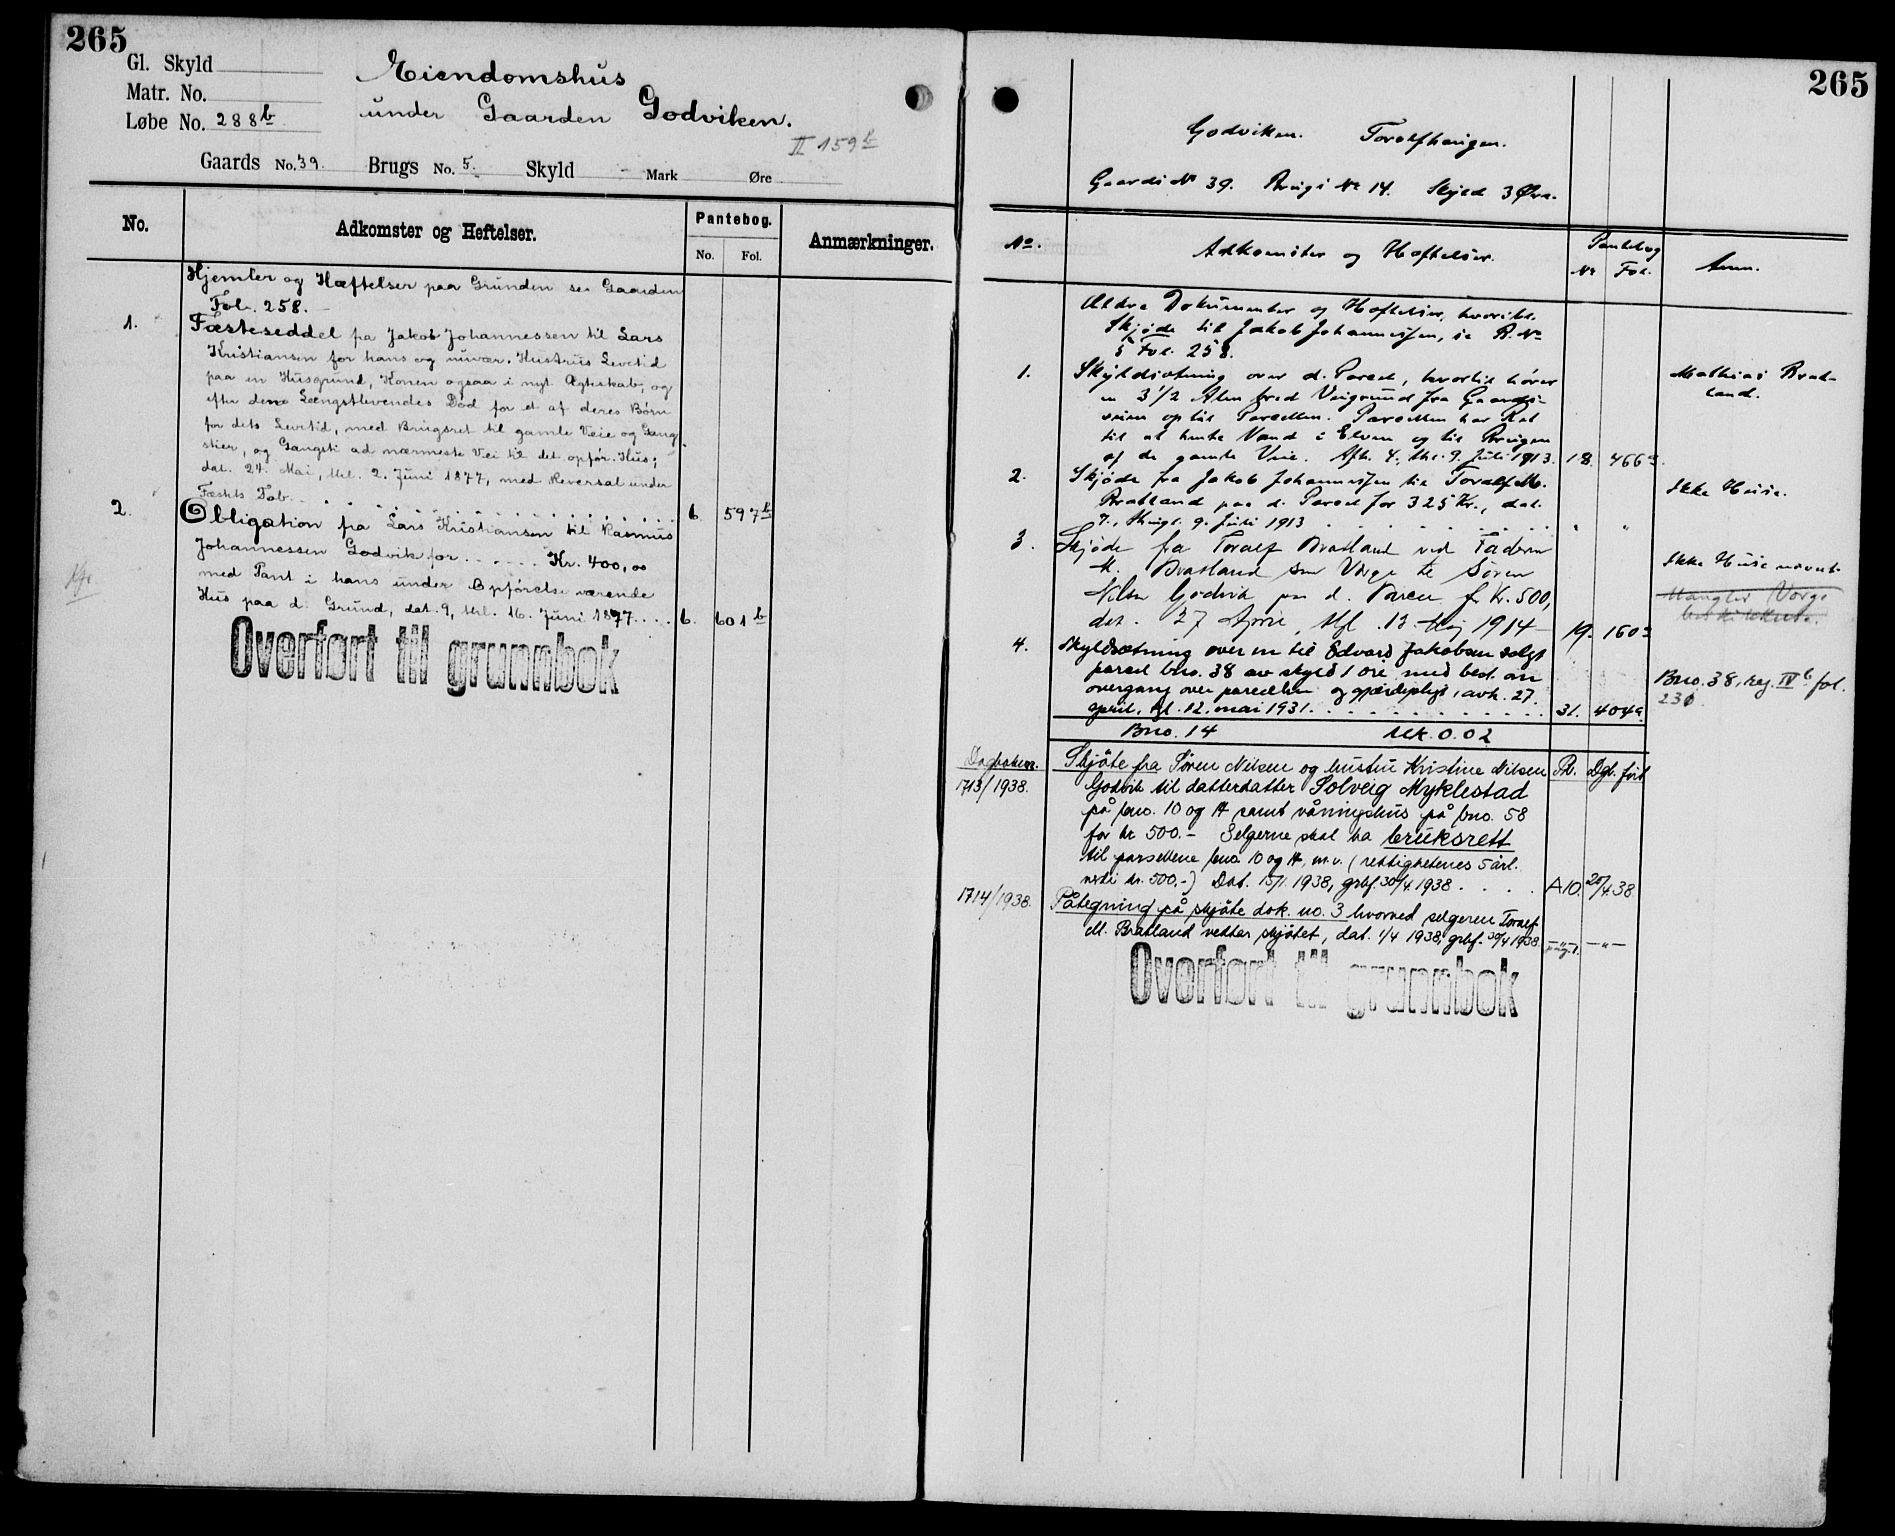 265
Gl. Skyld
Matr. No.
Løbe No. 288b
Eiendomshus
under Gaarden Godviken.
II 159b
Gaards No. 39. Brugs No. 5. Skyld Mark Øre
No. Adkomster og Heftelser. Pantebog. Anmærkninger.
No. Fol.
Hjemler og Hæftelser paa Grunden se Gaarden
Fol. 258.
1. Fæsteseddel fra Jakob Johannessen til Lars
Kristiansen for hans og nuvær. Hustrus Levetid
paa en Husgrund, Konen ogsaa i nyt Ægteskab, og
efter den Længstlevendes Død for et af deres Børn
for dets Levetid, med Brugsret til gamle Veie og Gang-
stier, og Gangsti ad nærmeste Vei til det opfør. Hus;
dat. 24. Mai, thl. 2. Juni 1877, med Reversal under
Fæstets Fob. 6. 597b
2. Obligation fra Lars Kristiansen til Rasmus
Johannessen Godvik for . . . . . Kr. 400,00
med Pant i hans under Opførelse værende
Hus paa d. Grund, dat. 9, thl. 16. Juni 1897 . . . . 6. 601b
Overført til grunnbok
265
Godviken. Toralfhaugen.
Gaards No 39. Brugs No 14. Skyld 3 Øre.
No. Adkomster og Heftelser. Pantebog Anm.
No Fol.
Ældre Dokumenter og Heftelser, hvoribl.
Skjøde til Jakob Johannessen, se B. No
5 Fol. 258.
1. Skyldsætning over d. Parcel, hvortil hører
en 3 1/2 Alen bred Veigrund fra Gaards-
veien op til Parcellen. Parcellen har Ret
til at hente Vand i Elven og til Brugen
af de gamle Veie. Afh. 4., thl. 9. Juli 1913. 18. 466a
Mathias Brat-
land.
2. Skjøde fra Jakob Johannessen til Toralf M.
Bratland paa d. Parcel for 325 Kr., dat.
7., thingl. 9. Juli 1913 . . . . . " "
Ikke Huse.
3. Skjøde fra Toralf Bratland ved Faderen
M. Bratland som Værge til Søren
Nilsen Godvik paa d. Parcel for Kr. 500,
dat. 27 April, thgl. 13 Maj 1914 19. 160a
Ikke Huse nævnt.
Mangler Værge
4. Skyldsætning over en til Edvard Jakobsen solgt
parcel bno. 38 av skyld 1 øre med best. om
overgang over parcellen og gjærdepligt, avh. 27.
april, tgl. 12. mai 1931. . . . . . . . . . . . . 31. 404a
Bno. 38, reg. IVb fol.
230
Bno. 14 Mk. 0.02
Dagboknr. Skjøte fra Søren Nilsen og hustru Kristine Nilsen Pb. Dgb. ført
1713/1938. Godvik til datterdatter Solveig Myklestad
på bno. 10 og 14 samt våningshus på bno. 58
for kr 500.- Selgerne skal ha bruksrett
til parsellene bno. 10 og 14, m.v. (rettighetenes 5 årl.
verdi kr. 500.-) Dat. 15/1. 1938, grbf. 30/4 1938 . . . . A10 20/4.38
1714/1938. Påtegning på skjøte dok. no. 3 hvorved selgeren Toralf
M. Bratland vedtar skjøtet, dat. 1/4 1938, grbf. 30/4 1938. —"— —"—
Overført til grunnbok